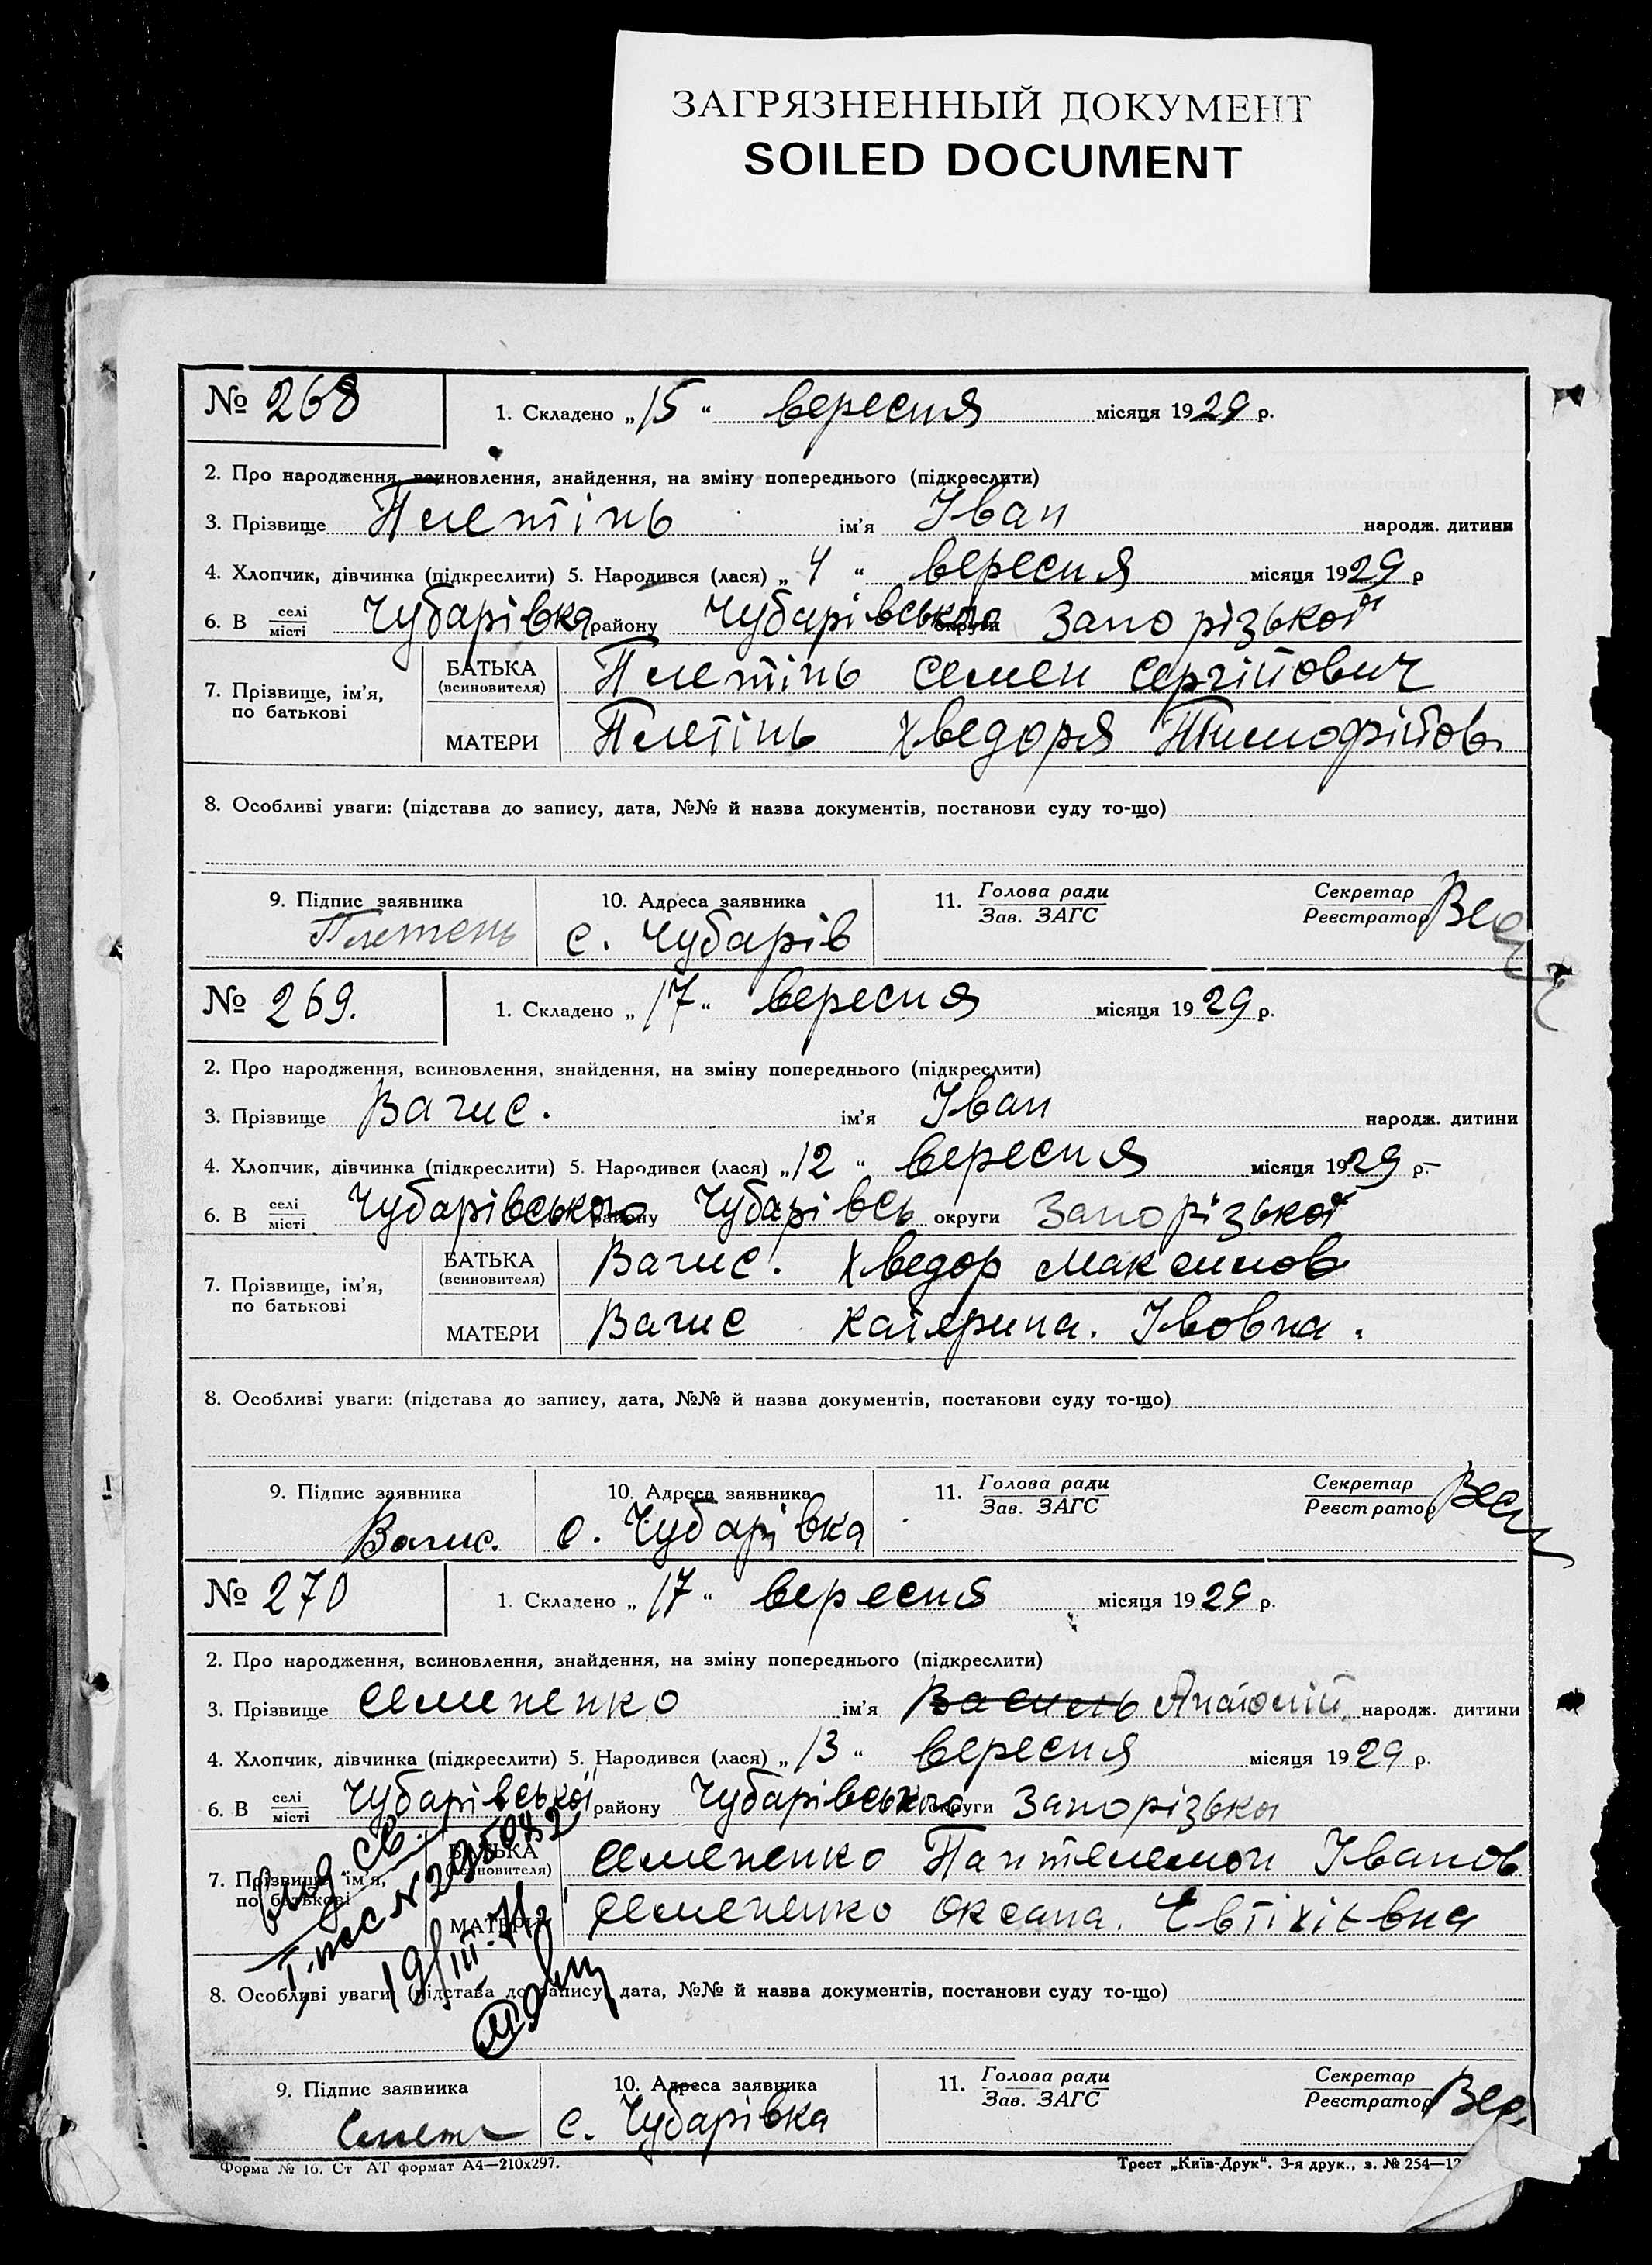 ЗАГРЯЗНЕННЫЙ ДОКУМЕНТ
SOILED DOCUMENT
№ 268 1. Складено „15“ вересня місяця 1929 р.
2. Про народження, всиновлення, знайдення, на зміну попереднього (підкреслити)
3. Прізвище Плетінь ім'я Іван народж. дитини
4. Хлопчик, дівчинка (підкреслити) 5. Народився (лася) „4“ вересня місяця 1929 р
6. В селі місті Чубарівка району Чубарівського округи Запорізької
7. Прізвище, ім'я, по батькові
БАТЬКА (всиновителя) Плетінь Семен Сергійович
МАТЕРИ Плетінь Хведоря Тимофійов
8. Особливі уваги: (підстава до запису, дата, №№ й назва документів, постанови суду то-що)
9. Підпис заявника 10. Адреса заявника 11. Голова ради Зав. ЗАГС Секретар Реєстратор
Плетень с. Чубарів
№ 269. 1. Складено „17“ вересня місяця 1929 р.
2. Про народження, всиновлення, знайдення, на зміну попереднього (підкреслити)
3. Прізвище Вагис. ім'я Іван народж. дитини
4. Хлопчик, дівчинка (підкреслити) 5. Народився (лася) „12“ вересня місяця 1929 р.
6. В селі місті Чубарівського району Чубарівсь округи Запорізької
7. Прізвище, ім'я, по батькові
БАТЬКА (всиновителя) Вагис. Хведор Максимов
МАТЕРИ Вагис Катерина. Івовна.
8. Особливі уваги: (підстава до запису, дата, №№ й назва документів, постанови суду то-що)
9. Підпис заявника 10. Адреса заявника 11. Голова ради Зав. ЗАГС Секретар Реєстратор
Вагис. с. Чубарівка
№ 270 1. Складено „17“ вересня місяця 1929 р.
2. Про народження, всиновлення, знайдення, на зміну попереднього (підкреслити)
3. Прізвище Семененко ім'я Василь Анатолій народж. дитини
4. Хлопчик, дівчинка (підкреслити) 5. Народився (лася) „13“ вересня місяця 1929 р.
6. В селі місті Чубарівської району Чубарівського округи Запорізька
7. Прізвище, ім'я, по батькові
БАТЬКА (всиновителя) Семененко Пантелемон Іванов
МАТЕРИ Семененко Оксана. Евтіхієвна
8. Особливі уваги: (підстава до запису, дата, №№ й назва документів, постанови суду то-що)
9. Підпис заявника 10. Адреса заявника 11. Голова ради Зав. ЗАГС Секретар Реєстратор
с. Чубарівка
Форма № 16. Ст АТ формат А4—210х297. Трест „Київ-Друк“. 3-я друк., з. № 254—12